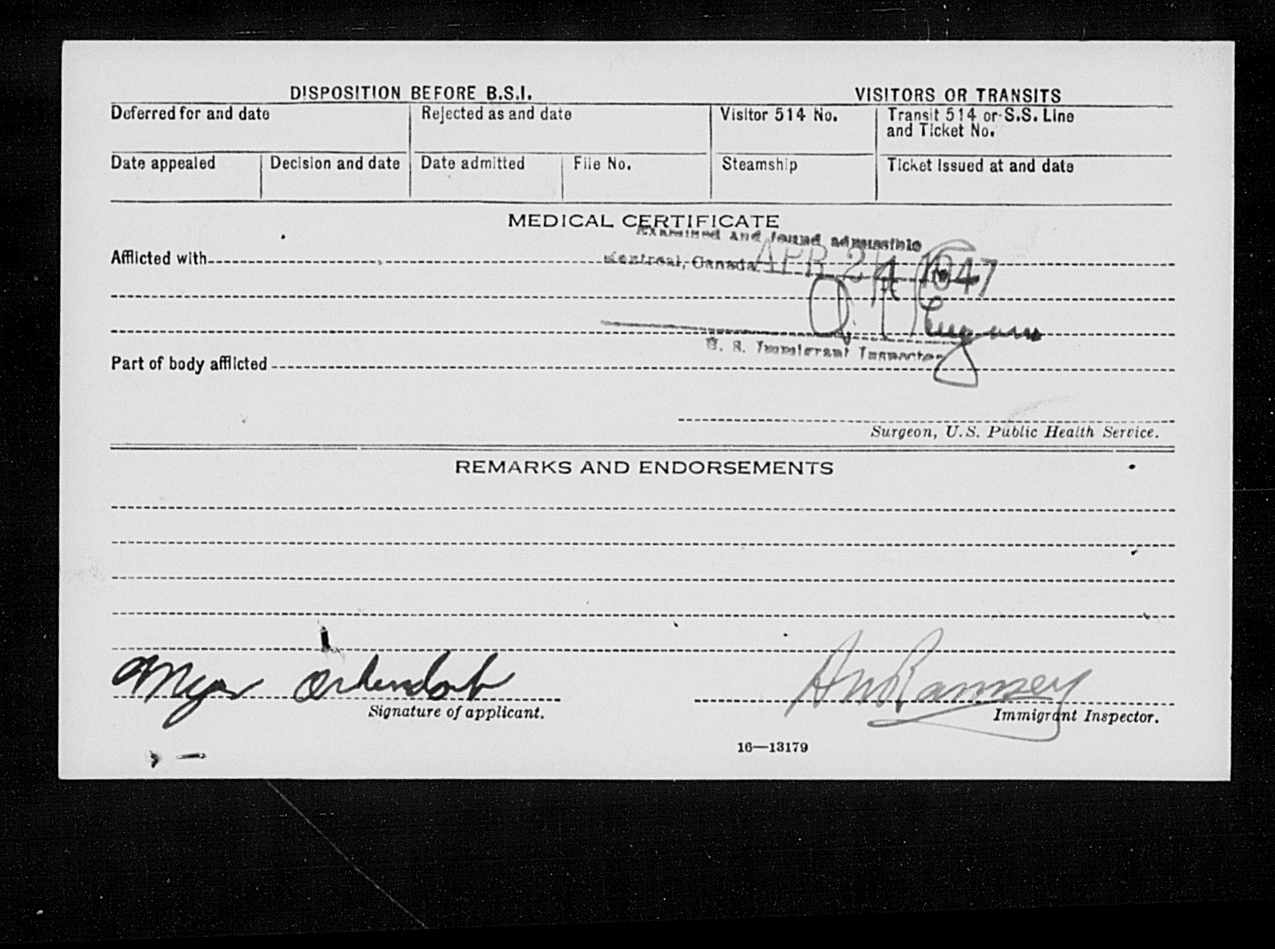 DISPOSITION BEFORE B.S.I.
VISITORS OR TRANSITS
Deferred for and date
Rejected as and date
Visitor 514 No.
Transit 514 or S.S. Line
and Ticket No.
Date appealed
Decision and date
Date admitted
File No.
Steamship
Ticket issued at and date
MEDICAL CERTIFICATE
Examined and found admissible
Afflicted with
Montreal, Canada APR 24 1947
U. S. Immigrant Inspector
Part of body afflicted
Surgeon, U.S. Public Health Service.
REMARKS AND ENDORSEMENTS
Ramsey
Signature of applicant.
Immigrant Inspector.
16—13179